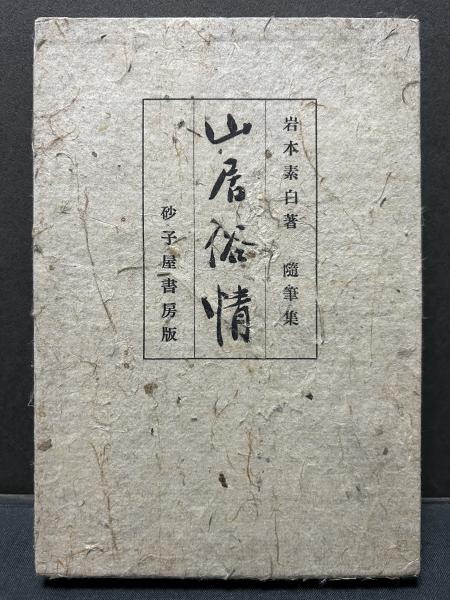 岩本素白著　隨筆集
山居俗情
砂子屋書房版